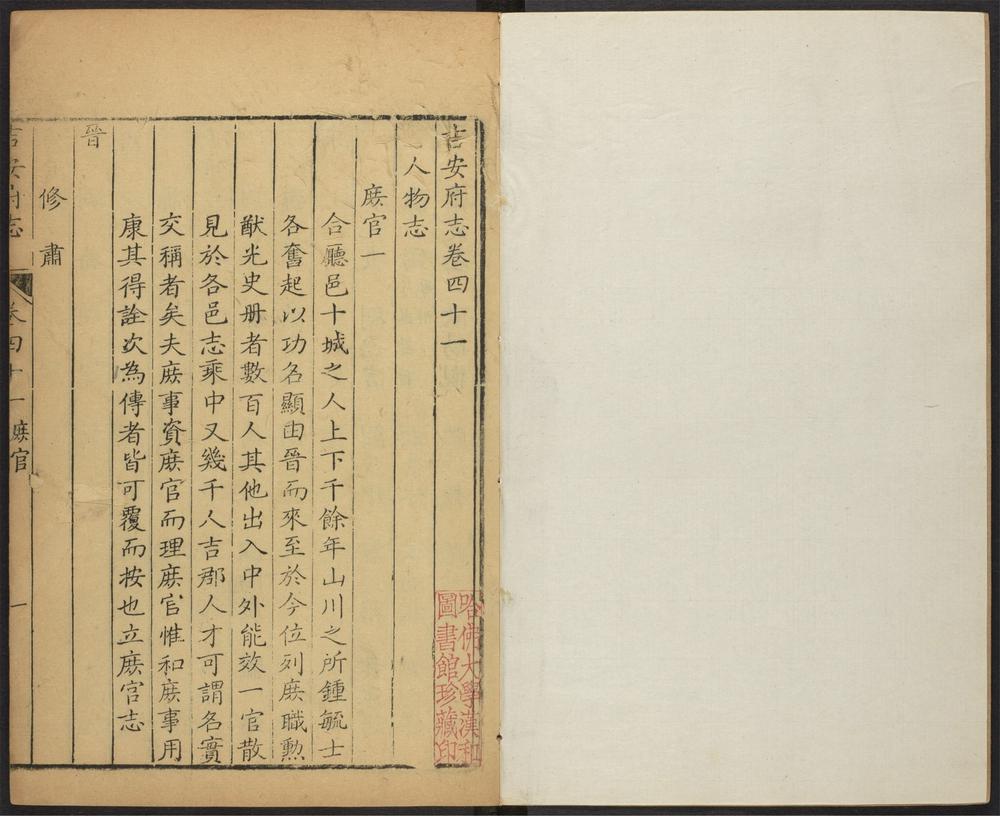 吉安府志卷四十一
人物志
庶官一
合廳邑十城之人上下千餘年山川之所鍾毓士
各奮起以功名顯由晉而來至於今位列庶職勲
猷光史册者數百人其他出入中外能效一官散
見於各邑志乘中又幾千人吉郡人才可謂名實
交稱者矣夫庶事資庶官而理庶官惟和庶事用
康其得詮次為傳者皆可覆而按也立庶官志
晉
修肅
吉安府志 卷四十一 庶官 一
哈佛大學漢和
圖書館珍藏印